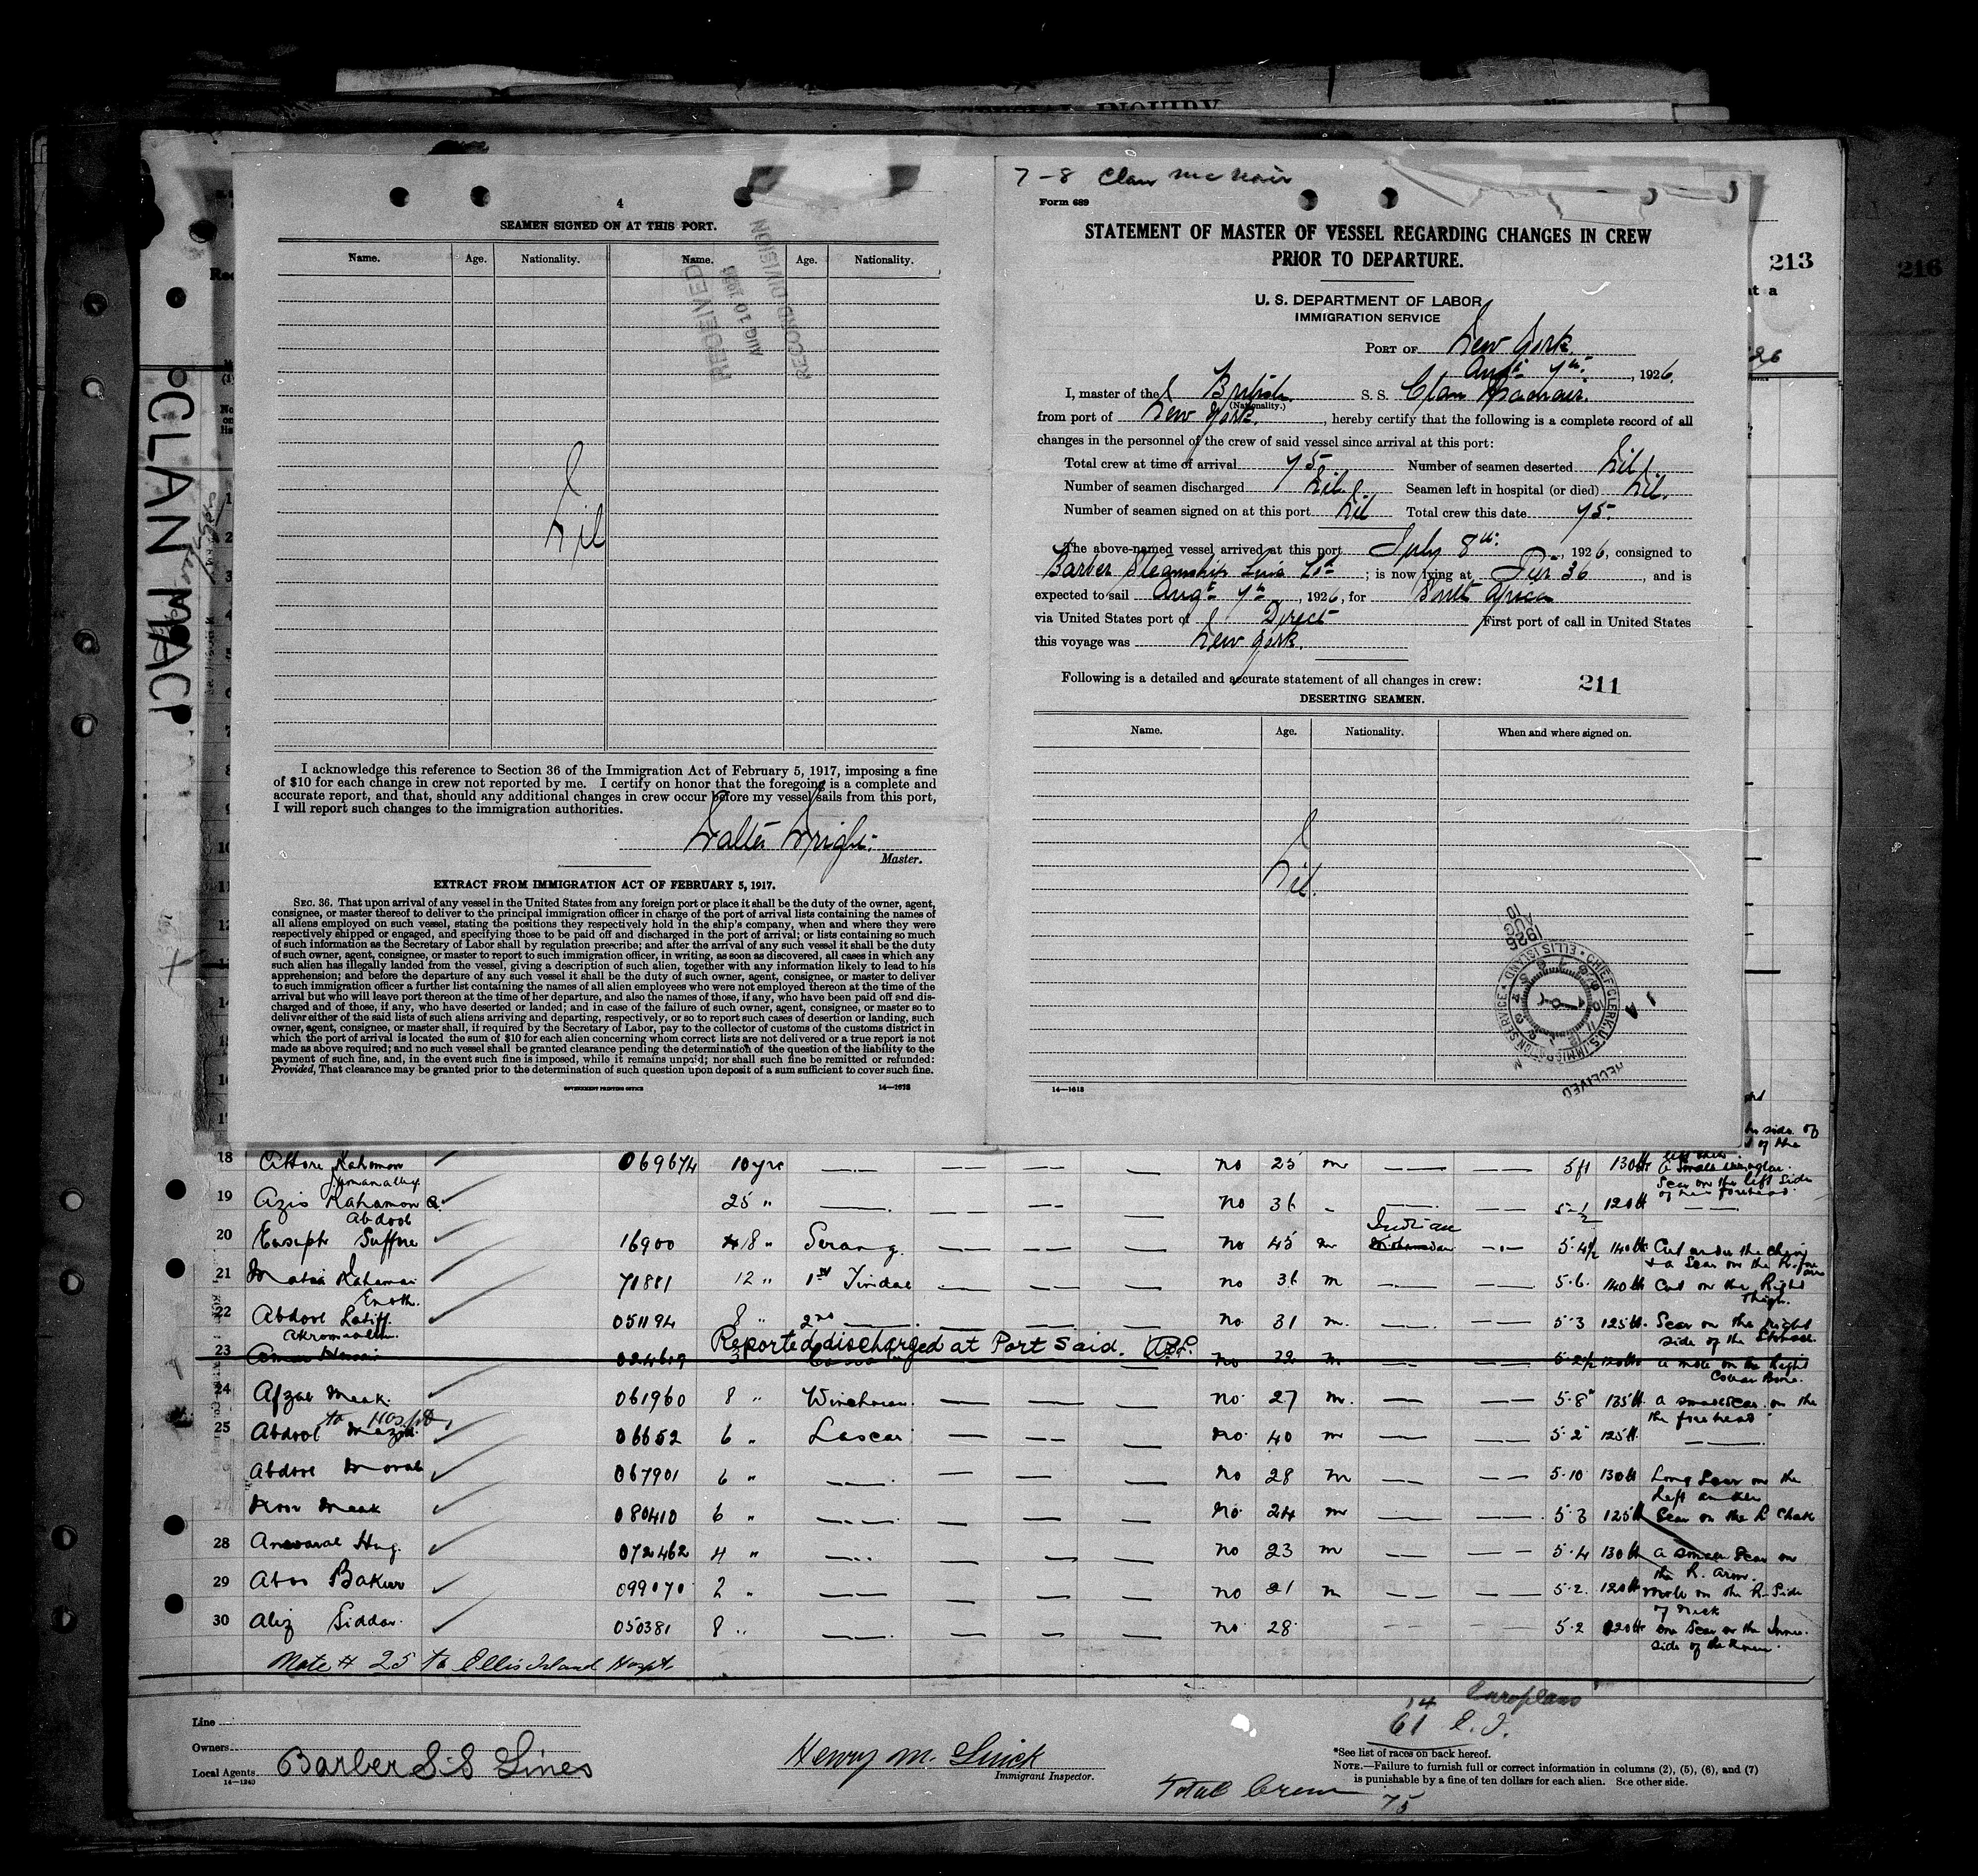 SPECIAL INQUIRY
4
SEAMEN SIGNED ON AT THIS PORT.
Name. Age. Nationality. Name. Age. Nationality.
RECEIVED
AUG 10 1926
RECORD DIVISION
Nil
I acknowledge this reference to Section 36 of the Immigration Act of February 5, 1917, imposing a fine
of $10 for each change in crew not reported by me. I certify on honor that the foregoing is a complete and
accurate report, and that, should any additional changes in crew occur before my vessel sails from this port,
I will report such changes to the immigration authorities.
Walter Wright.
Master.
EXTRACT FROM IMMIGRATION ACT OF FEBRUARY 5, 1917.
SEC. 36. That upon arrival of any vessel in the United States from any foreign port or place it shall be the duty of the owner, agent,
consignee, or master thereof to deliver to the principal immigration officer in charge of the port of arrival lists containing the names of
all aliens employed on such vessel, stating the positions they respectively hold in the ship's company, when and where they were
respectively shipped or engaged, and specifying those to be paid off and discharged in the port of arrival; or lists containing so much
of such information as the Secretary of Labor shall by regulation prescribe; and after the arrival of any such vessel it shall be the duty
of such owner, agent, consignee, or master to report to such immigration officer, in writing, as soon as discovered, all cases in which any
such alien has illegally landed from the vessel, giving a description of such alien, together with any information likely to lead to his
apprehension; and before the departure of any such vessel it shall be the duty of such owner, agent, consignee, or master to deliver
to such immigration officer a further list containing the names of all alien employees who were not employed thereon at the time of the
arrival but who will leave port thereon at the time of her departure, and also the names of those, if any, who have been paid off and dis-
charged and of those, if any, who have deserted or landed; and in case of the failure of such owner, agent, consignee, or master so to
deliver either of the said lists of such aliens arriving and departing, respectively, or so to report such cases of desertion or landing, such
owner, agent, consignee, or master shall, if required by the Secretary of Labor, pay to the collector of customs of the customs district in
which the port of arrival is located the sum of $10 for each alien concerning whom correct lists are not delivered or a true report is not
made as above required; and no such vessel shall be granted clearance pending the determination of the question of the liability to the
payment of such fine, and, in the event such fine is imposed, while it remains unpaid; nor shall such fine be remitted or refunded:
Provided, That clearance may be granted prior to the determination of such question upon deposit of a sum sufficient to cover such fine.
GOVERNMENT PRINTING OFFICE 14—1618
7-8 Clan McNair
Form 689
STATEMENT OF MASTER OF VESSEL REGARDING CHANGES IN CREW
PRIOR TO DEPARTURE.
U. S. DEPARTMENT OF LABOR
IMMIGRATION SERVICE
PORT OF New York.
Augt 7th, 1926.
I, master of the British S. S. Clan Macnair.
(Nationality.)
from port of New York, hereby certify that the following is a complete record of all
changes in the personnel of the crew of said vessel since arrival at this port:
Total crew at time of arrival 75 Number of seamen deserted Nil
Number of seamen discharged Nil Seamen left in hospital (or died) Nil.
Number of seamen signed on at this port Nil Total crew this date 75.
The above-named vessel arrived at this port July 8th, 1926, consigned to
Barber Steamship Line Ltd; is now lying at Pier 36, and is
expected to sail Augt 7th, 1926, for South Africa
via United States port of Direct First port of call in United States
this voyage was New York.
Following is a detailed and accurate statement of all changes in crew: 211
DESERTING SEAMEN.
Name. Age. Nationality. When and where signed on.
Nil.
1926 AUG 10
CHIEF CLERK, U.S. IMMIGRATION SERVICE • ELLIS ISLAND
RECEIVED
14—1618
213
216
CLAN MAC
18 Kahamon 069674 10 yrs no 25 m 5ft 130lb
19 Azis Kahamon 25 " no 36 5-½ 120lb Scar on the left side of his forehead.
20 Abdool Euseph Suffore 16900 18 " Serang. no 45 m Indian 5.4½ 140lb Cut under the chin & a Scar on the R. fore arm
21 Kahamai 71881 12 " 1st Tindal no 36 m 5.6. 140lb Cut on the Right Thigh.
22 Abdool Latiff. 051194 8 " 2nd no. 31 m. 5.3 125lb. Scar on the right side of the Stomach
Reported discharged at Port Said.
23 3 no 32 m 5.2½ 120lb a mole on the Right Collar Bone.
24 Afzal Meak. 061960 8 " Winchman. no. 27 m. 5.8 135lb. a small scar on the the forehead
to Hospital
25 Abdool Mazid. 06652 6 " Lascar no. 40 m 5.2 125lb.
Abdool Morab 067901 6 " no 28 m 5.10 130lb Long Scar on the Left ankle
27 Noor Meak 080410 6 " no. 24 m 5.3 125lb Scar on the R Cheak
28 Anwaral Hug. 072462 4 " no 23 m 5.4 130lb a small Scar on the R. arm.
29 Aboo Baker 099070 2 " no 21 m 5.2. 120lb mole on the R. Side of Neck
30 Aliz Siddar. 050381 8 " no. 28 5.2 120lb one Scar on the Inner side of the Knee.
Note # 25 to Ellis Island Hospt.
Line
Owners
Local Agents Barber S.S Lines
14—1240
Henry M. Linick
Immigrant Inspector.
14 Europeans
61 E. I.
*See list of races on back hereof.
NOTE.—Failure to furnish full or correct information in columns (2), (5), (6), and (7)
is punishable by a fine of ten dollars for each alien. See other side.
Total Crew 75